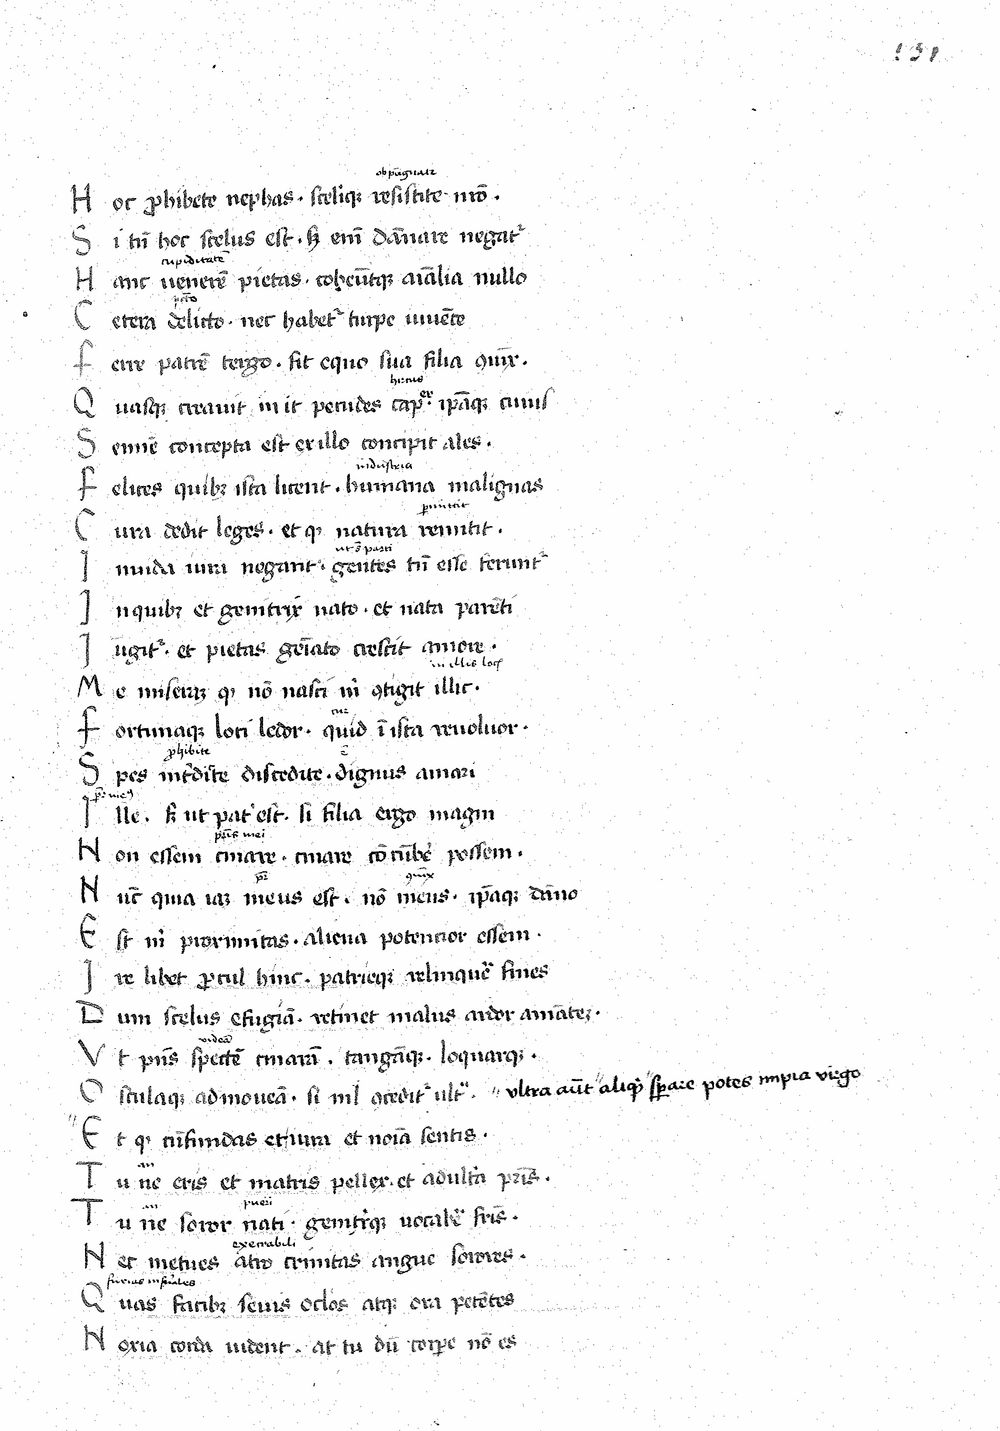 131
obpugnate
Hoc ꝓhibete nephas. sceliqꝫ resistite nr̃o.
Si tñ hoc scelus est. sꝫ enĩ dãnare negatᷣ
cupiditatẽ
Hanc uenerẽ pietas. coheũtqꝫ aĩalia nullo
pctõ
Cetera delicto. nec habetᷣ turpe iuuẽce
Ferre patrẽ tergo. fit equo sua filia ꝯiũx.
hircus
Quasqꝫ creauit init pecudes cap̲er. ip̃aqꝫ cuius
Semĩe concepta est ex illo concipit ales.
industria
Felices quibꝫ ista licent. humana malignas
p̲mittit
Cura dedit leges. et qꝫ natura remitit.
Inuida iura negant. gentes tñ esse feruntᷣ
Inquibꝫ et genitrix nato. et nata parẽti
Iũgitᷣ. et pietas gemĩato crescit amore.
in illis locꝭ
Me miserã qꝫ nõ nasci m̃ ꝯtigit illic.
Fortunaqꝫ loci ledor. quid ĩ ista reuoluor.
ꝓhibite
Spes int̾dic̃te discedite. dignus amari
Ille. sꝫ ut pat̾ est. si filia ergo magni
pr̃is mei
Non essem cinare. cinare cõcũbe̾ possem.
pr̃ ꝯiũx
Nũc quia iaꝫ meus est. nõ meus. ip̃aqꝫ dãno
Est m̃ proximitas. aliena potencior essem.
Ire libet ꝓcul hinc. patrieqꝫ relinque̾ fines
Dum scelus efugiã. retinet malus ardor amãteꝫ.
uideã
Vt p̃ñs spectẽ cinarã. tangãqꝫ. loquarqꝫ.
Osculaqꝫ admoueã. si nil ꝯceditᷣ ultᷣ. " vltra aũt aliqꝫ sp̲are potes impia virgo
Et qꝫ cũfundas et iura et noĩa sentis.
an
Tu ne eris et matris pellex. et adult̾a pr̃is.
an pueri
Tu ne soror nati. genitr̾qꝫ uocabe̾ fr̃is.
execrabili
Nec metues atro crinitas angue sorores.
furias infernales
Quas facibꝫ seuis oclõs atqꝫ ora petẽtes
Noxia corda uident. at tu dũ corp̲e nõ es